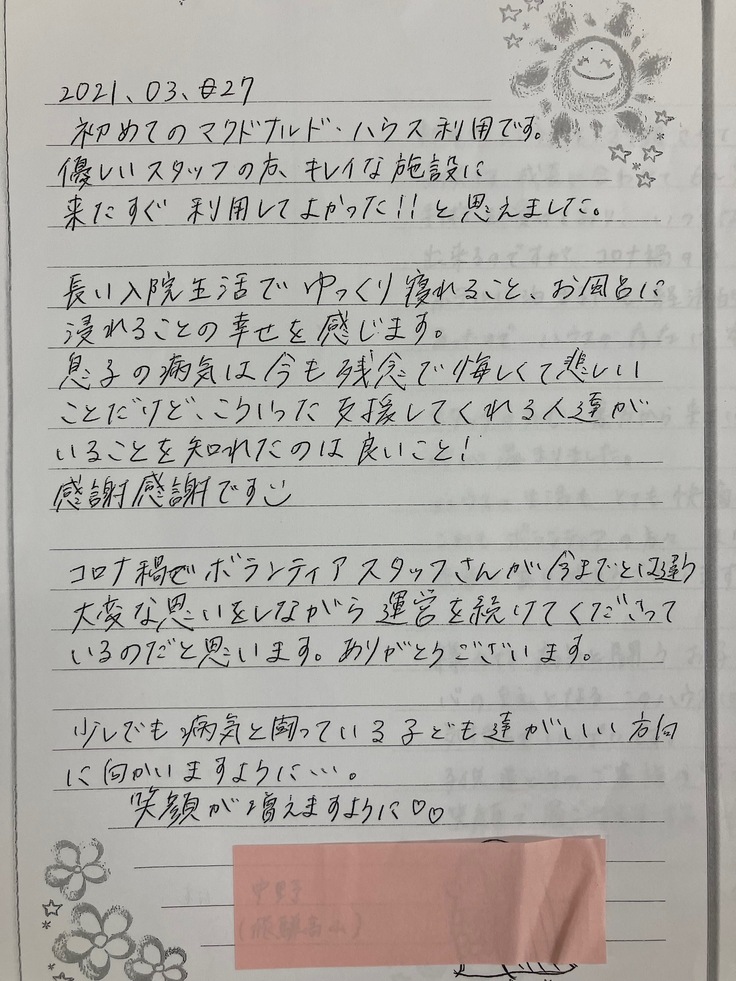 2021、03、27
初めてのマクドナルド・ハウス利用です。
優しいスタッフの方、キレイな施設に
来たすぐ 利用してよかった!! と思えました。
長い入院生活で ゆっくり寝れること、お風呂に
浸れることの幸せを感じます。
息子の病気は今も残念で悔しくて悲しい
ことだけど、こういった支援してくれる人達が
いることを知れたのは良いこと!
感謝感謝です
コロナ禍でボランティアスタッフさんが今までとは違う
大変な思いをしながら運営を続けてくださって
いるのだと思います。ありがとうございます。
少しでも病気と闘っている子ども達がいい方向
に向かいますように…。
笑顔が増えますように♡♡
中野
(飛騨高山)